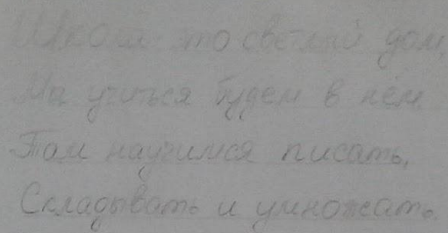 Школа это светлый дом,
Мы учиться будем в нём.
Там научимся писать,
Складывать и умножать.